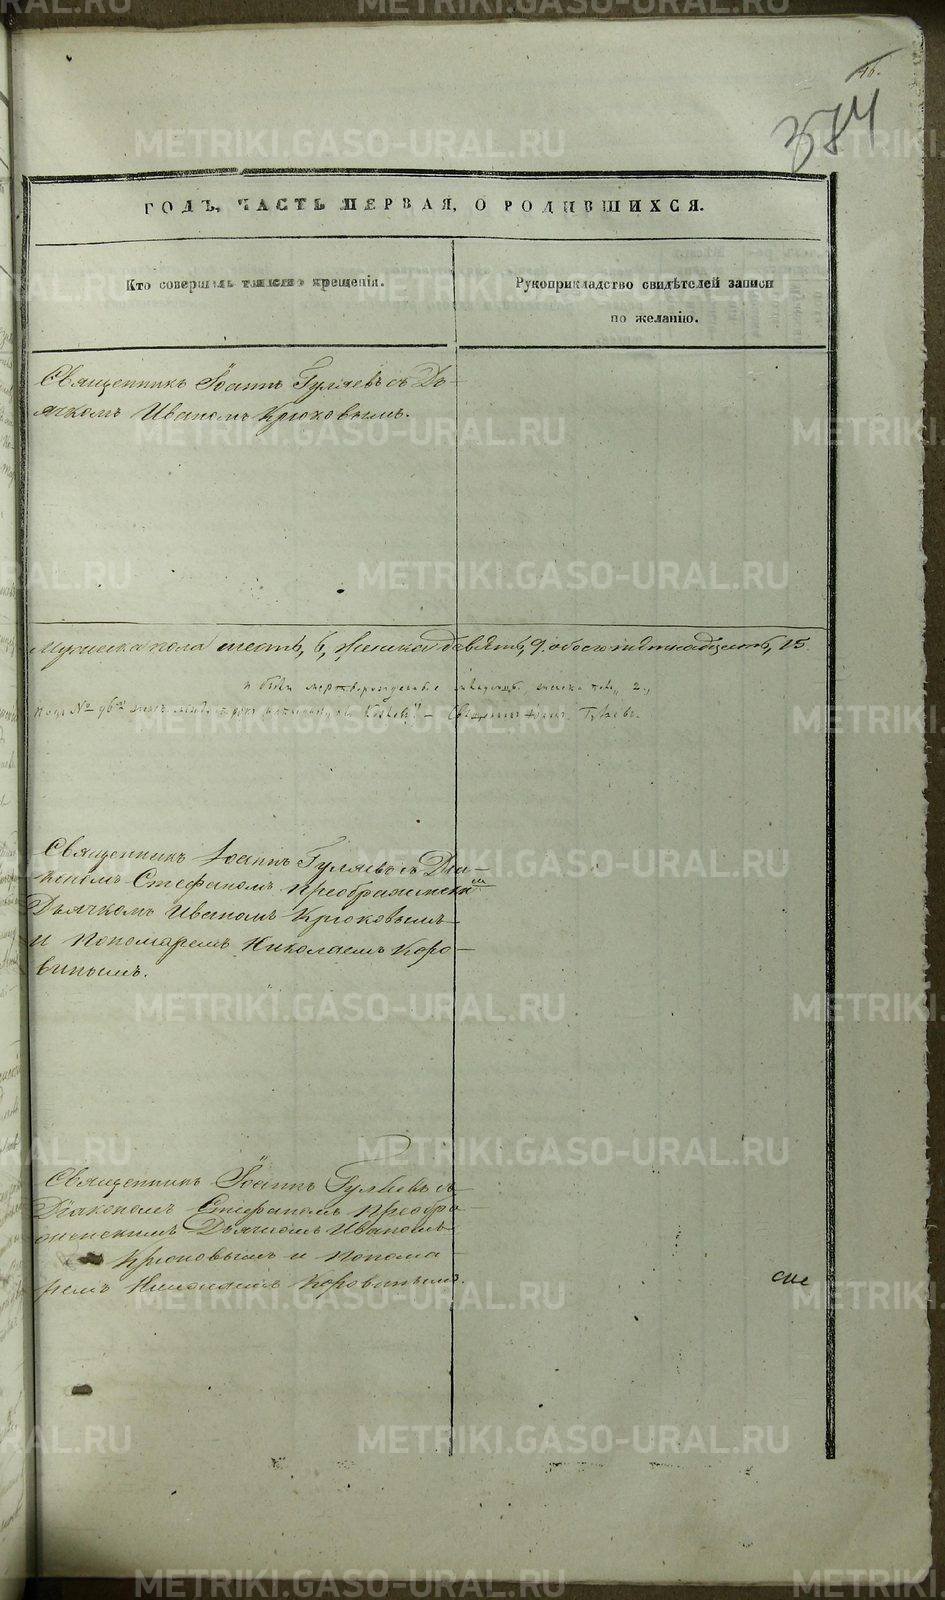 METRIKI.GASO-URAL.RU
16.
384
ГОДЪ, ЧАСТЬ ПЕРВАЯ, О РОДИВШИХСЯ.
Кто совершалъ таинство крещенія.
Рукоприкладство свидѣтелей записи
по желанію.
Священникъ Іоаннъ Гуляевъ съ Дь-
ячкомъ Иваномъ Крюковымъ.
Мужеска пола шесть, 6, женска девять, 9, обоего пятнадцать, 15.
Священникъ Іоаннъ Гуляевъ съ Діа-
кономъ Стефаномъ Преображенским
Дьячкомъ Иваномъ Крюковымъ
и Пономаремъ Николаемъ Коро-
винымъ.
Священникъ Іоаннъ Гуляевъ съ
Діакономъ Стефаномъ Преобра-
женскимъ Дьячкомъ Иваномъ
Крюковымъ и Понома-
ремъ Николаемъ Коровинымъ.